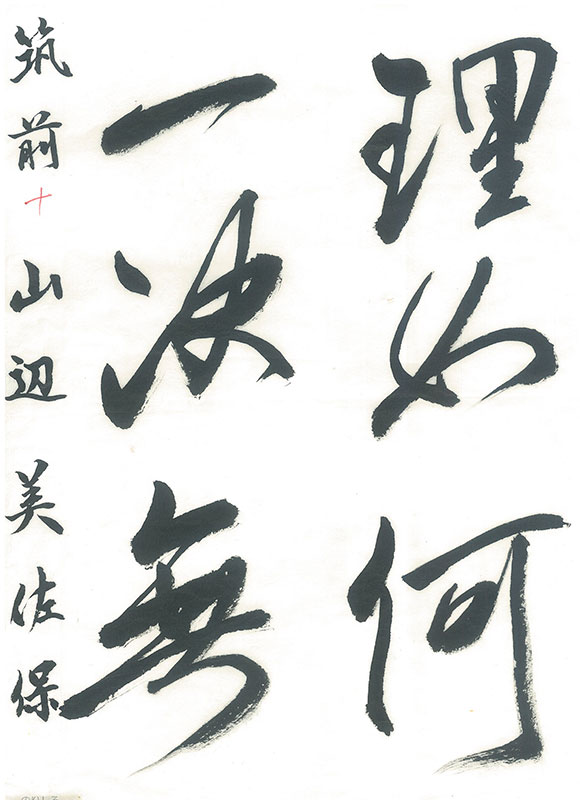 理如何
一決無
筑前十 山辺 美佐保